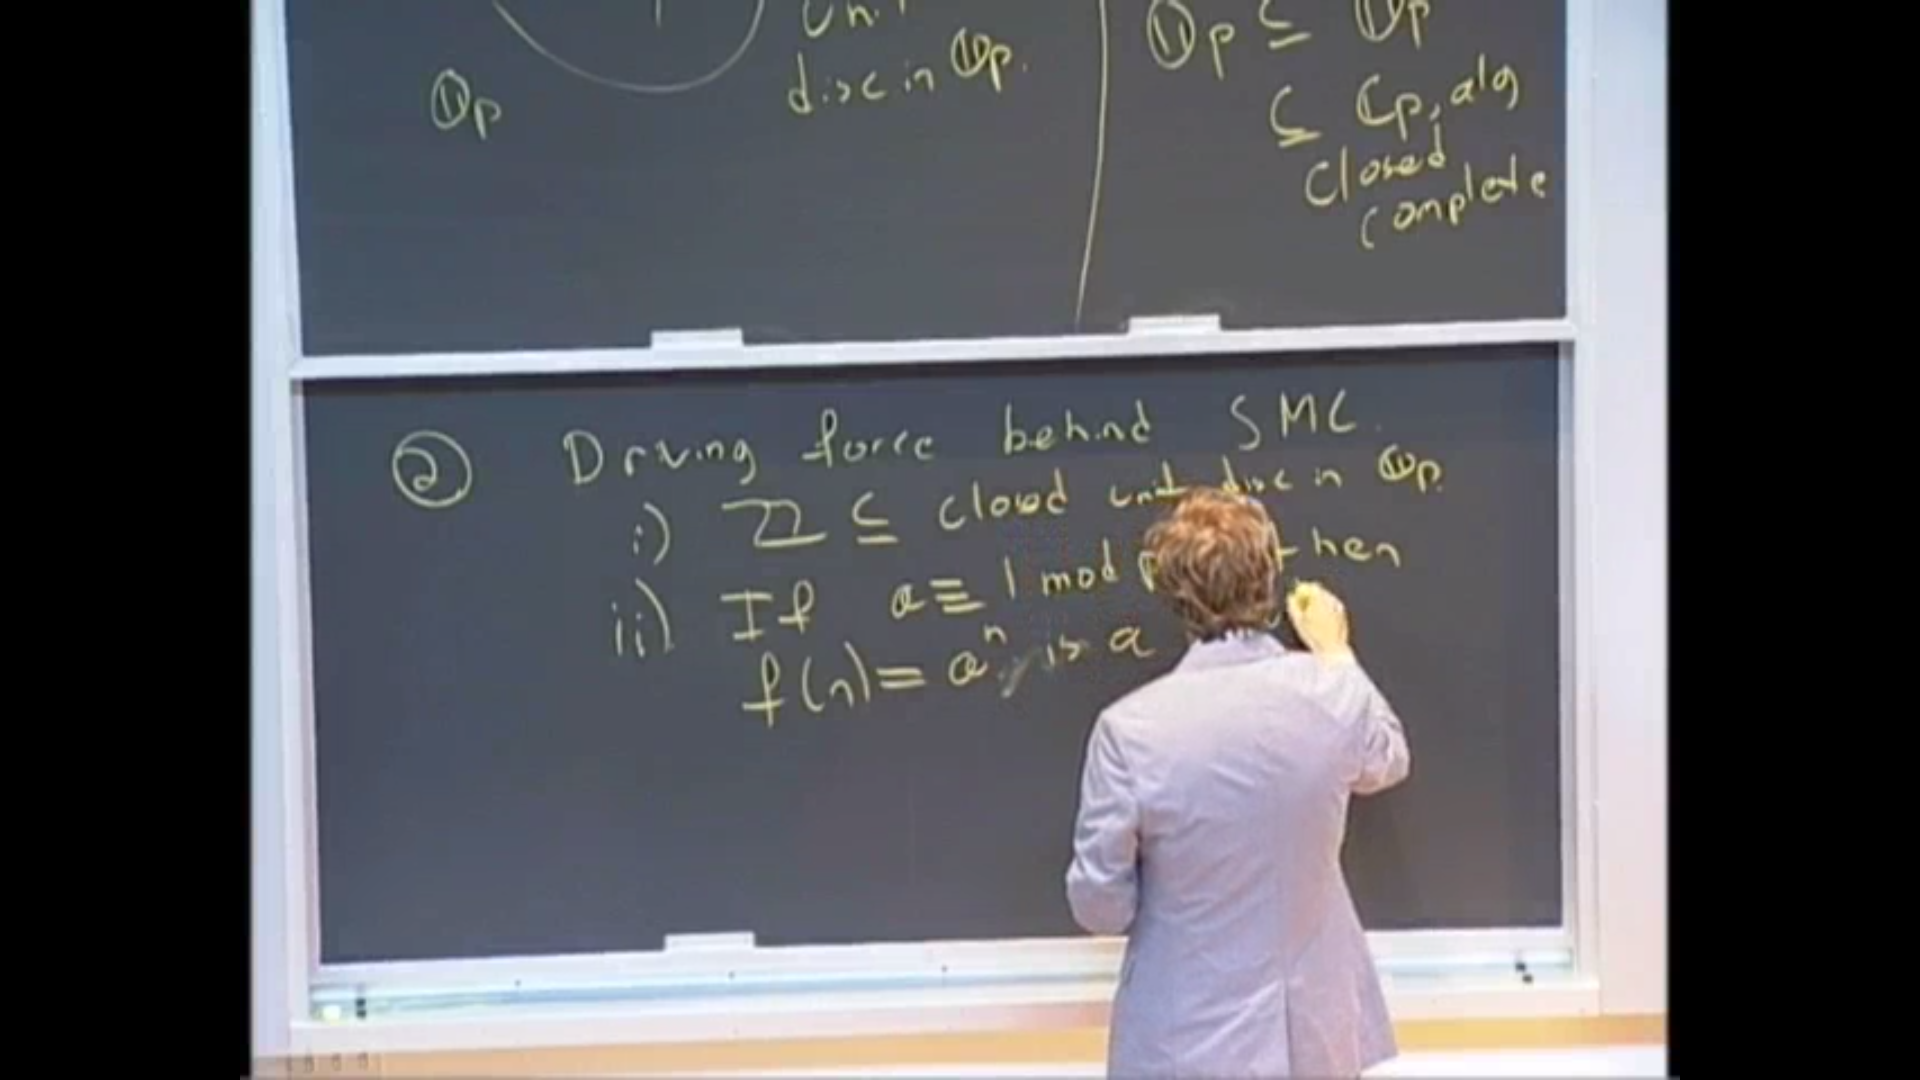 unit
disc in ℚp.
ℚp
ℚp ⊆ ℚp
⊆ ℂp, alg
closed
complete
② Driving force behind SML.
i) ℤ ⊆ closed unit disc in ℚp.
ii) If a ≡ 1 mod p then
f(n) = aⁿ, is a